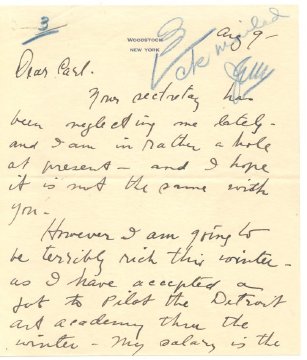 3
WOODSTOCK
NEW YORK
Aug 9-
ck mailed
Dear Carl.
Your secretay has
been neglecting me lately-
and I am in rather a hole
at present - and I hope
it is not the same with
you-
However I am going to
be terribly rich this winter-
as I have accepted a
job to Pilot the Detroit
art academy thru the
winter - My salary is the